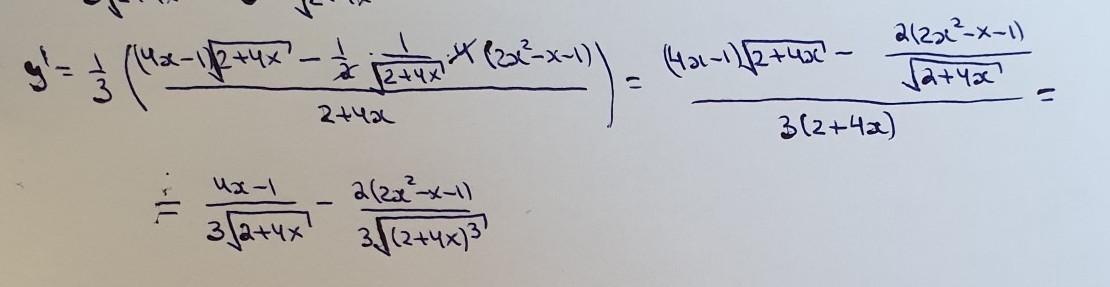 y' = 1/3 ( ((4x-1)√(2+4x) - 1/2 · 1/√(2+4x) · 4 (2x²-x-1)) / (2+4x) ) = ((4x-1)√(2+4x) - 2(2x²-x-1)/√(2+4x)) / (3(2+4x)) =
= (4x-1)/(3√(2+4x)) - 2(2x²-x-1)/(3√((2+4x)³))